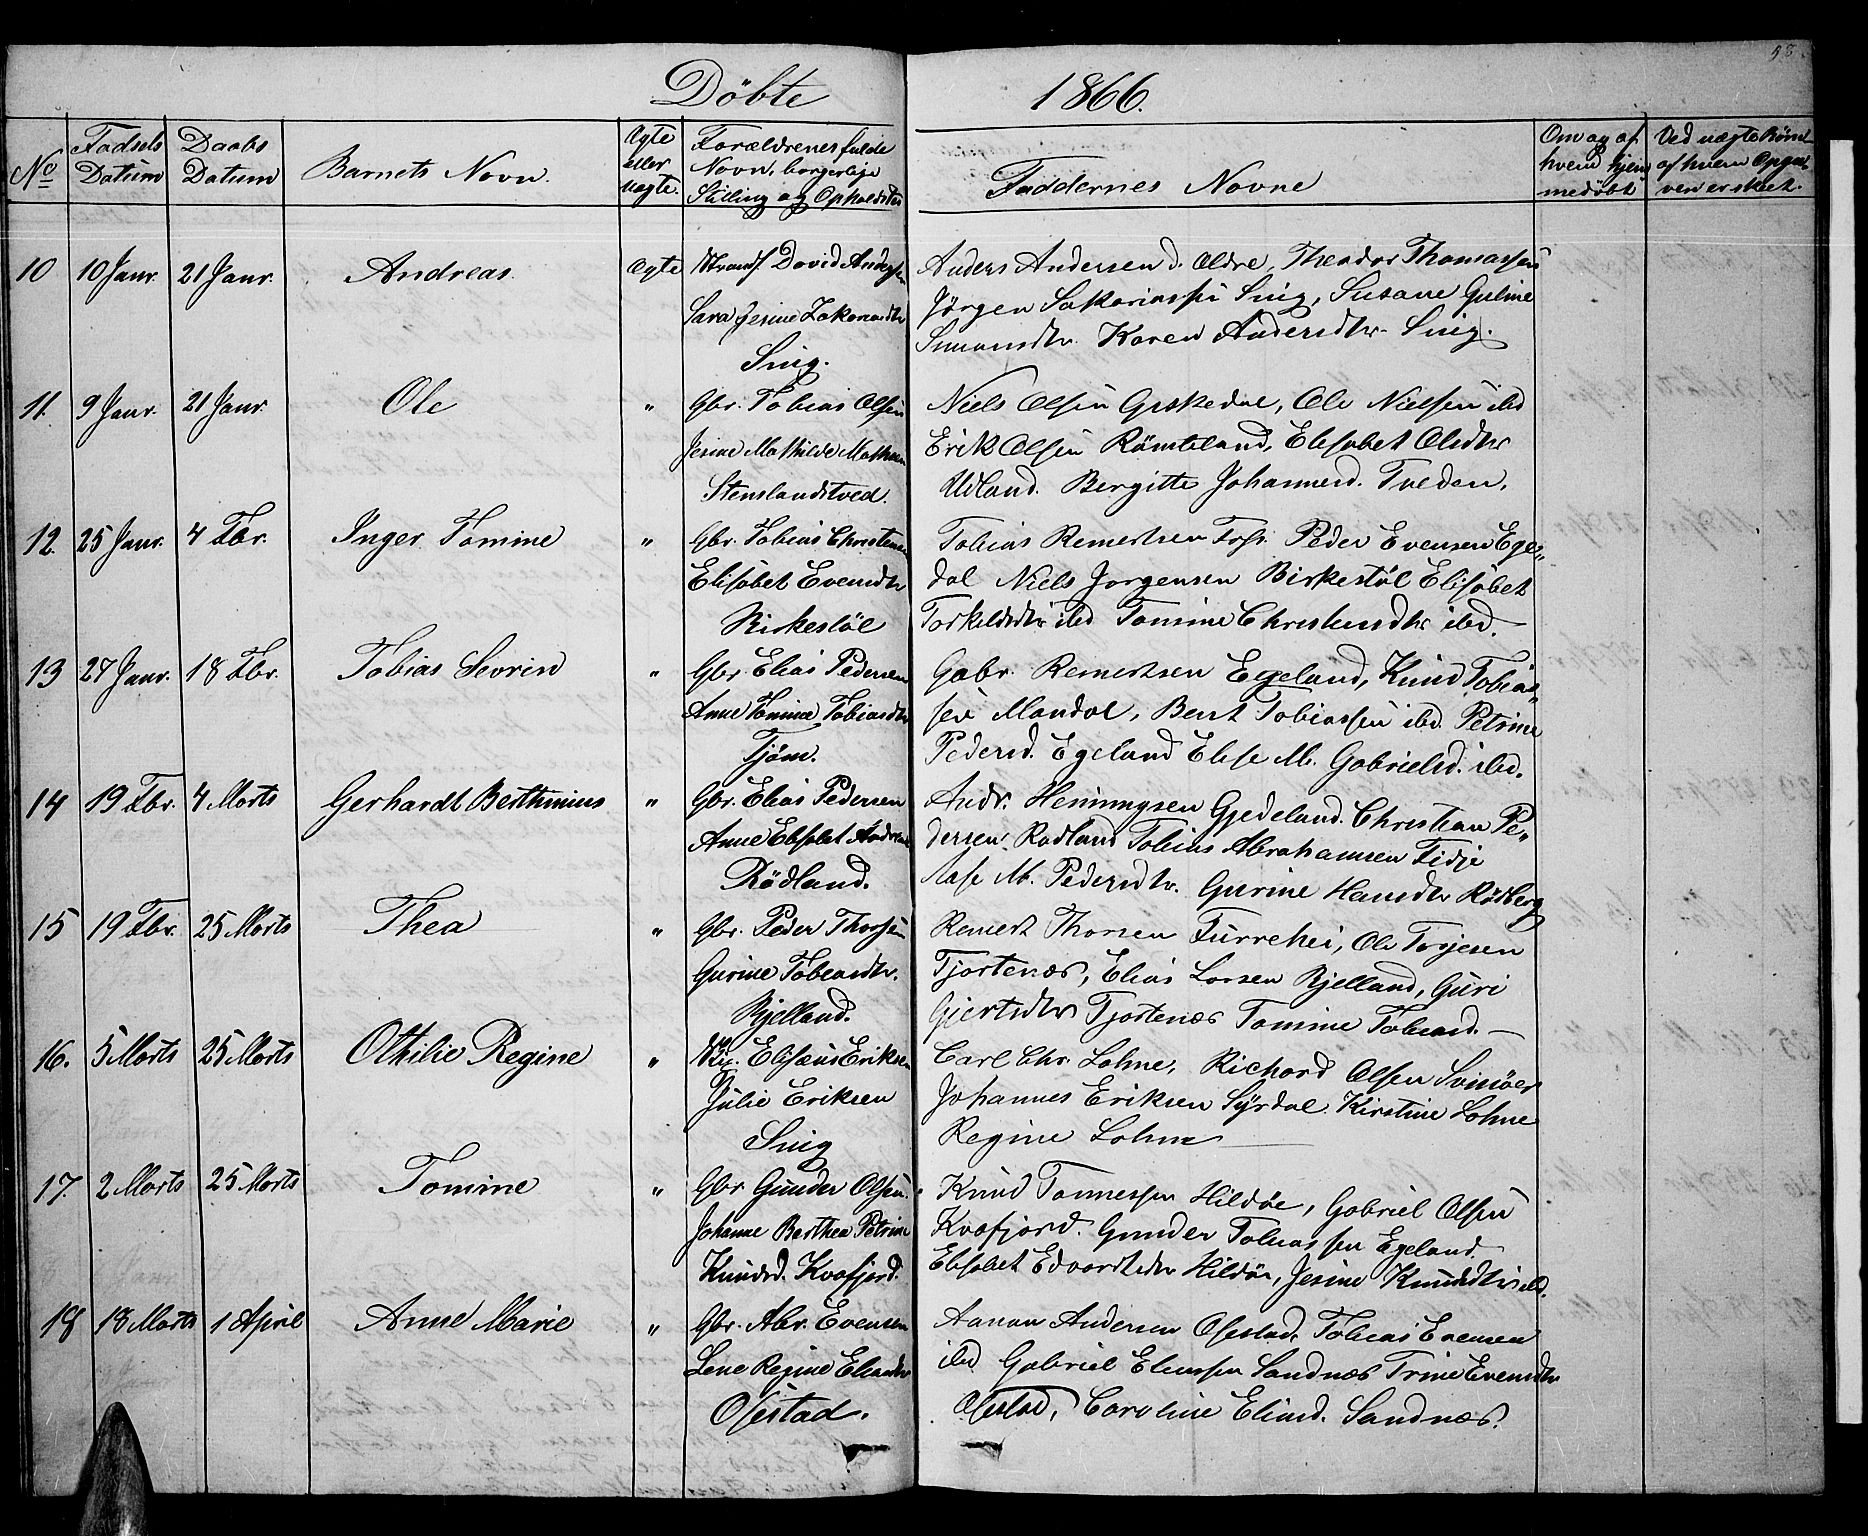 58
Döbte 1866.
No Fødsels Datum Daabs Datum Barnets Navn. Ægte eller uægte. Forældrenes fulde Navn, borgerlige Stilling og Opholdsted Faddernes Navne Om og af hvem hjem medöbt Ved uægte Börn af hvem Opgaven er skeet.
10 10 Janr. 21 Janr. Andreas. Ægte Strand. David Andersen Anders Andersen d. Ældre, Theodor Thomassen
Sara Jesine Zakariasdtr Jörgen Sakariassen Snig, Susane Guline
Snig. Simonsdtr. Karen Andersdtr. Snig.
11. 9 Janr. 21 Janr. Ole " Gbr. Tobias Olsen Niels Olsen Geskedal, Ole Nielsen ibd
Jesine Mathilde Erik Olsen Römteland, Elisabet Olsdtr
Stenslandstved. Udland. Bergitte Johannesd. Tveden.
12. 25 Janr. 4 Fbr. Inger Tomine " Gbr. Tobias Christensen Tobias Remertsen Foss. Peder Evensen Eges„
Elisabet Evensdtr dal Niels Jorgensen Birkestöl Elisabet
Birkestöl Torkeldsdtr ibd Tomine Christensdtr ibd.
13 27 Janr. 18 Fbr. Tobias Severin " Gbr. Elias Pedersen Gabr. Remertsen Egeland, Knud Tobias„
Anne Tomine Tobiasdtr sen Mandal, Bent Tobiassen ibd. Petrine
Tjöm. Pedersd. Egeland Elise M. Gabrielsd. ibd.
14 19 Fbr. 4 Marts Gerhardt Berthinius " Gbr. Elias Pedersen Andr. Henningsen Gjedeland. Christian Pe„
Anne Elisabet dersen, Rødland Tobias Abrahamsen Fidje
Rödland. Aase M. Pedersdtr. Gurine Hansdtr Rødberg
15 19 Fbr. 25 Marts Thea " Gbr. Peder Thorsen Remert Thorsen Furrehei, Ole Torjesen
Gurine Tobiasdtr. Tjortenæs, Elias Larsen Bjelland, Guri
Bjelland. Gjertsdtr Tjortenæs Tomine Tobiasd.
16. 5 Marts 25 Marts Othilie Regine " Elisæus Eriksen Carl Chr. Lohne, Richard Olsen Svinöer
Julie Eriksen Johannes Eriksen Syrdal. Kirstine Lohne
Snig Regine Lohne
17. 2 Marts 25 Marts Tomine " Gbr Gunder Olsen. Knud Tönnessen Hildöe, Gabriel Olsen
Johanne Berthea Petrine Kvafjord. Gunder Tobiassen Egeland.
Knudsd. Kvafjord. Elisabet Edvardtsdtr Hildöe, Jesine Knudsdtr ibd.
18 18 Marts 1 April Anne Marie " Gbr. Abr. Evensen Aanon Andersen Ofestad, Tobias Evensen
Lene Regine Eliasdtr ibd Gabriel Eliassen Sandnæs Trine Evensdtr
Ofestad. Ofestad, Caroline Eliasd. Sandnæs.